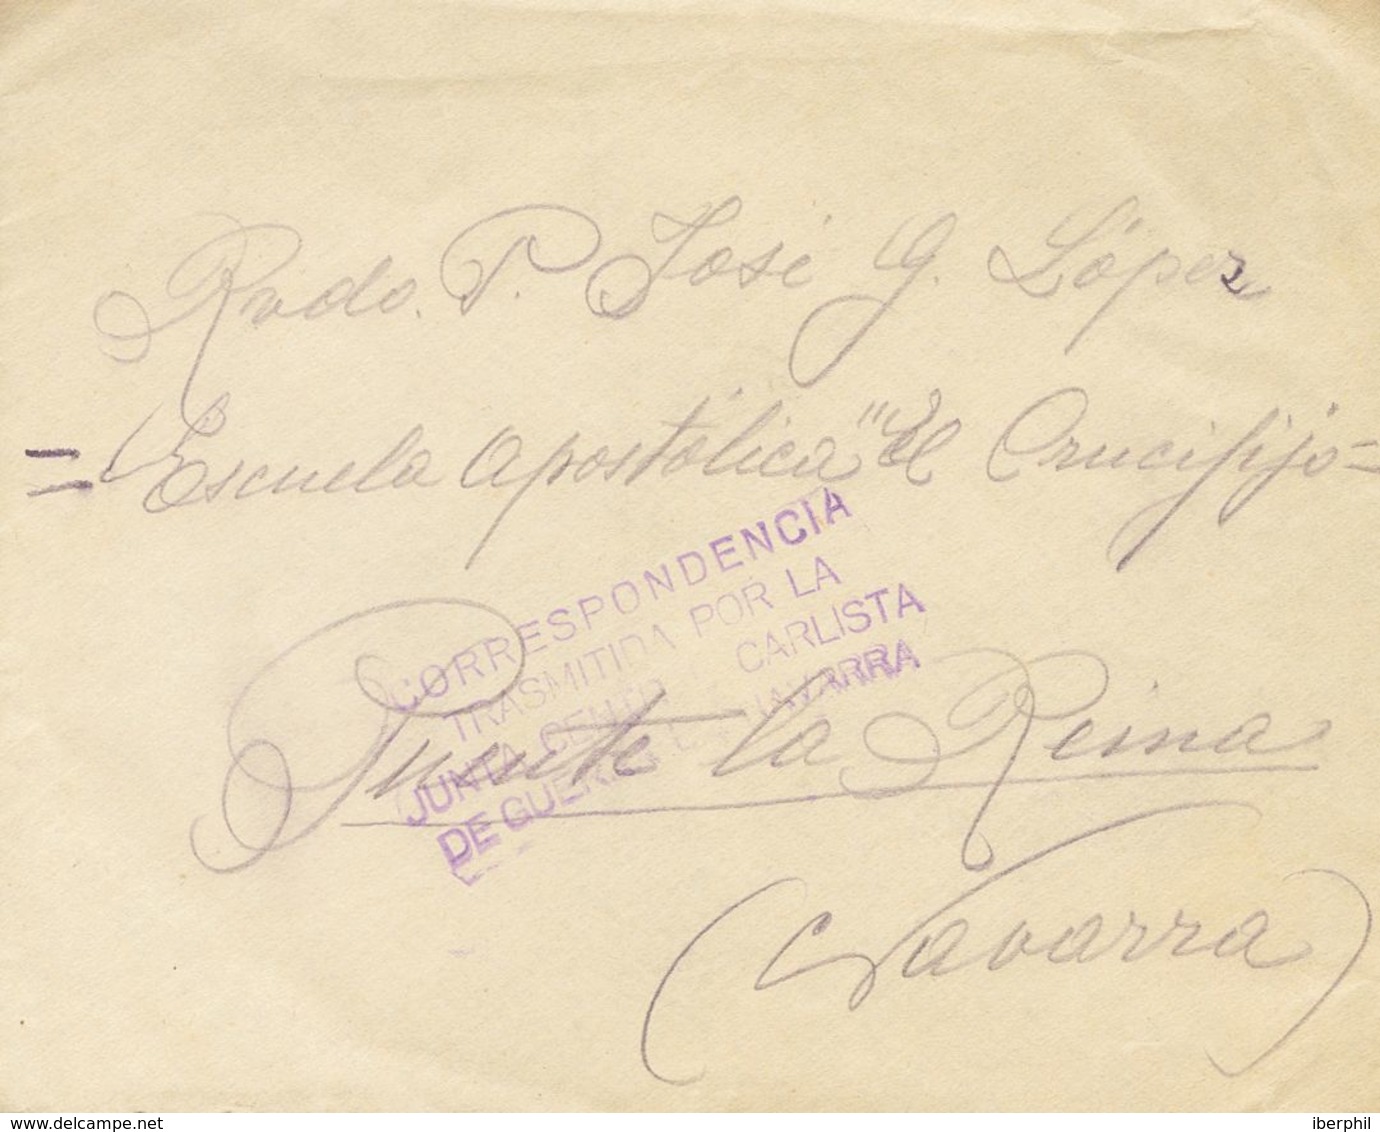 Rvdo. P. José G. López
= Escuela Apostólica "El Crucifijo =
CORRESPONDENCIA
TRASMITIDA POR LA
JUNTA CENTR CARLISTA
DE GUERRA NAVARRA
Puente la Reina
(Navarra)
www.delcampe.net
iberphil